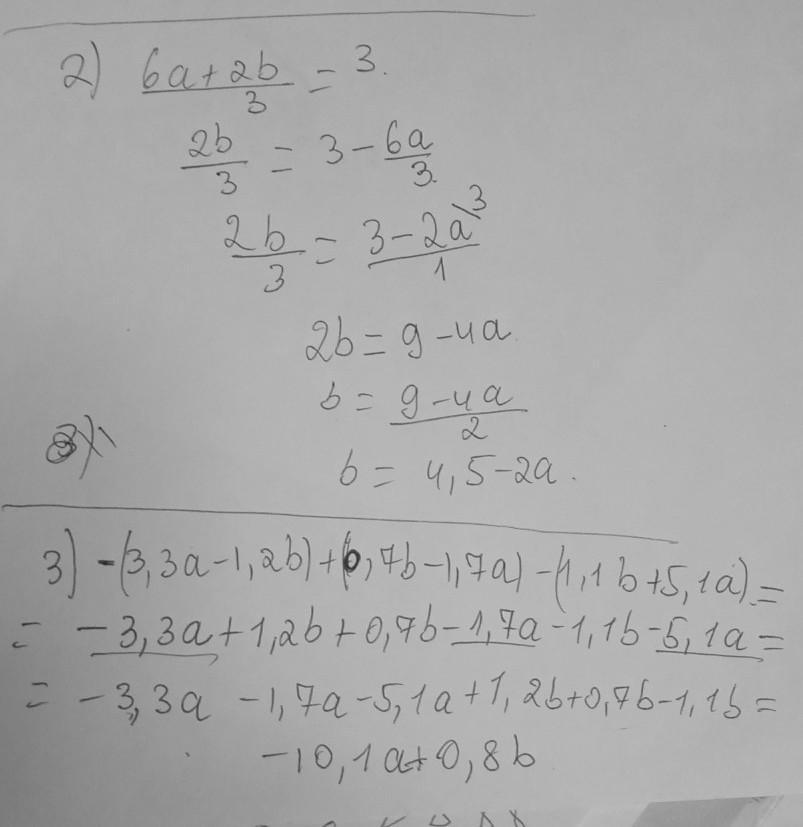 2) (6a+2b)/3 = 3.
2b/3 = 3 - 6a/3.
2b/3 = (3-2a\3)/1
2b = 9-4a.
b = (9-4a)/2
b = 4,5-2a.
3) -(3,3a-1,2b)+(0,7b-1,7a)-(1,1b+5,1a)=
= -3,3a+1,2b+0,7b-1,7a-1,1b-5,1a=
= -3,3a -1,7a-5,1a+1,2b+0,7b-1,1b=
-10,1a+0,8b